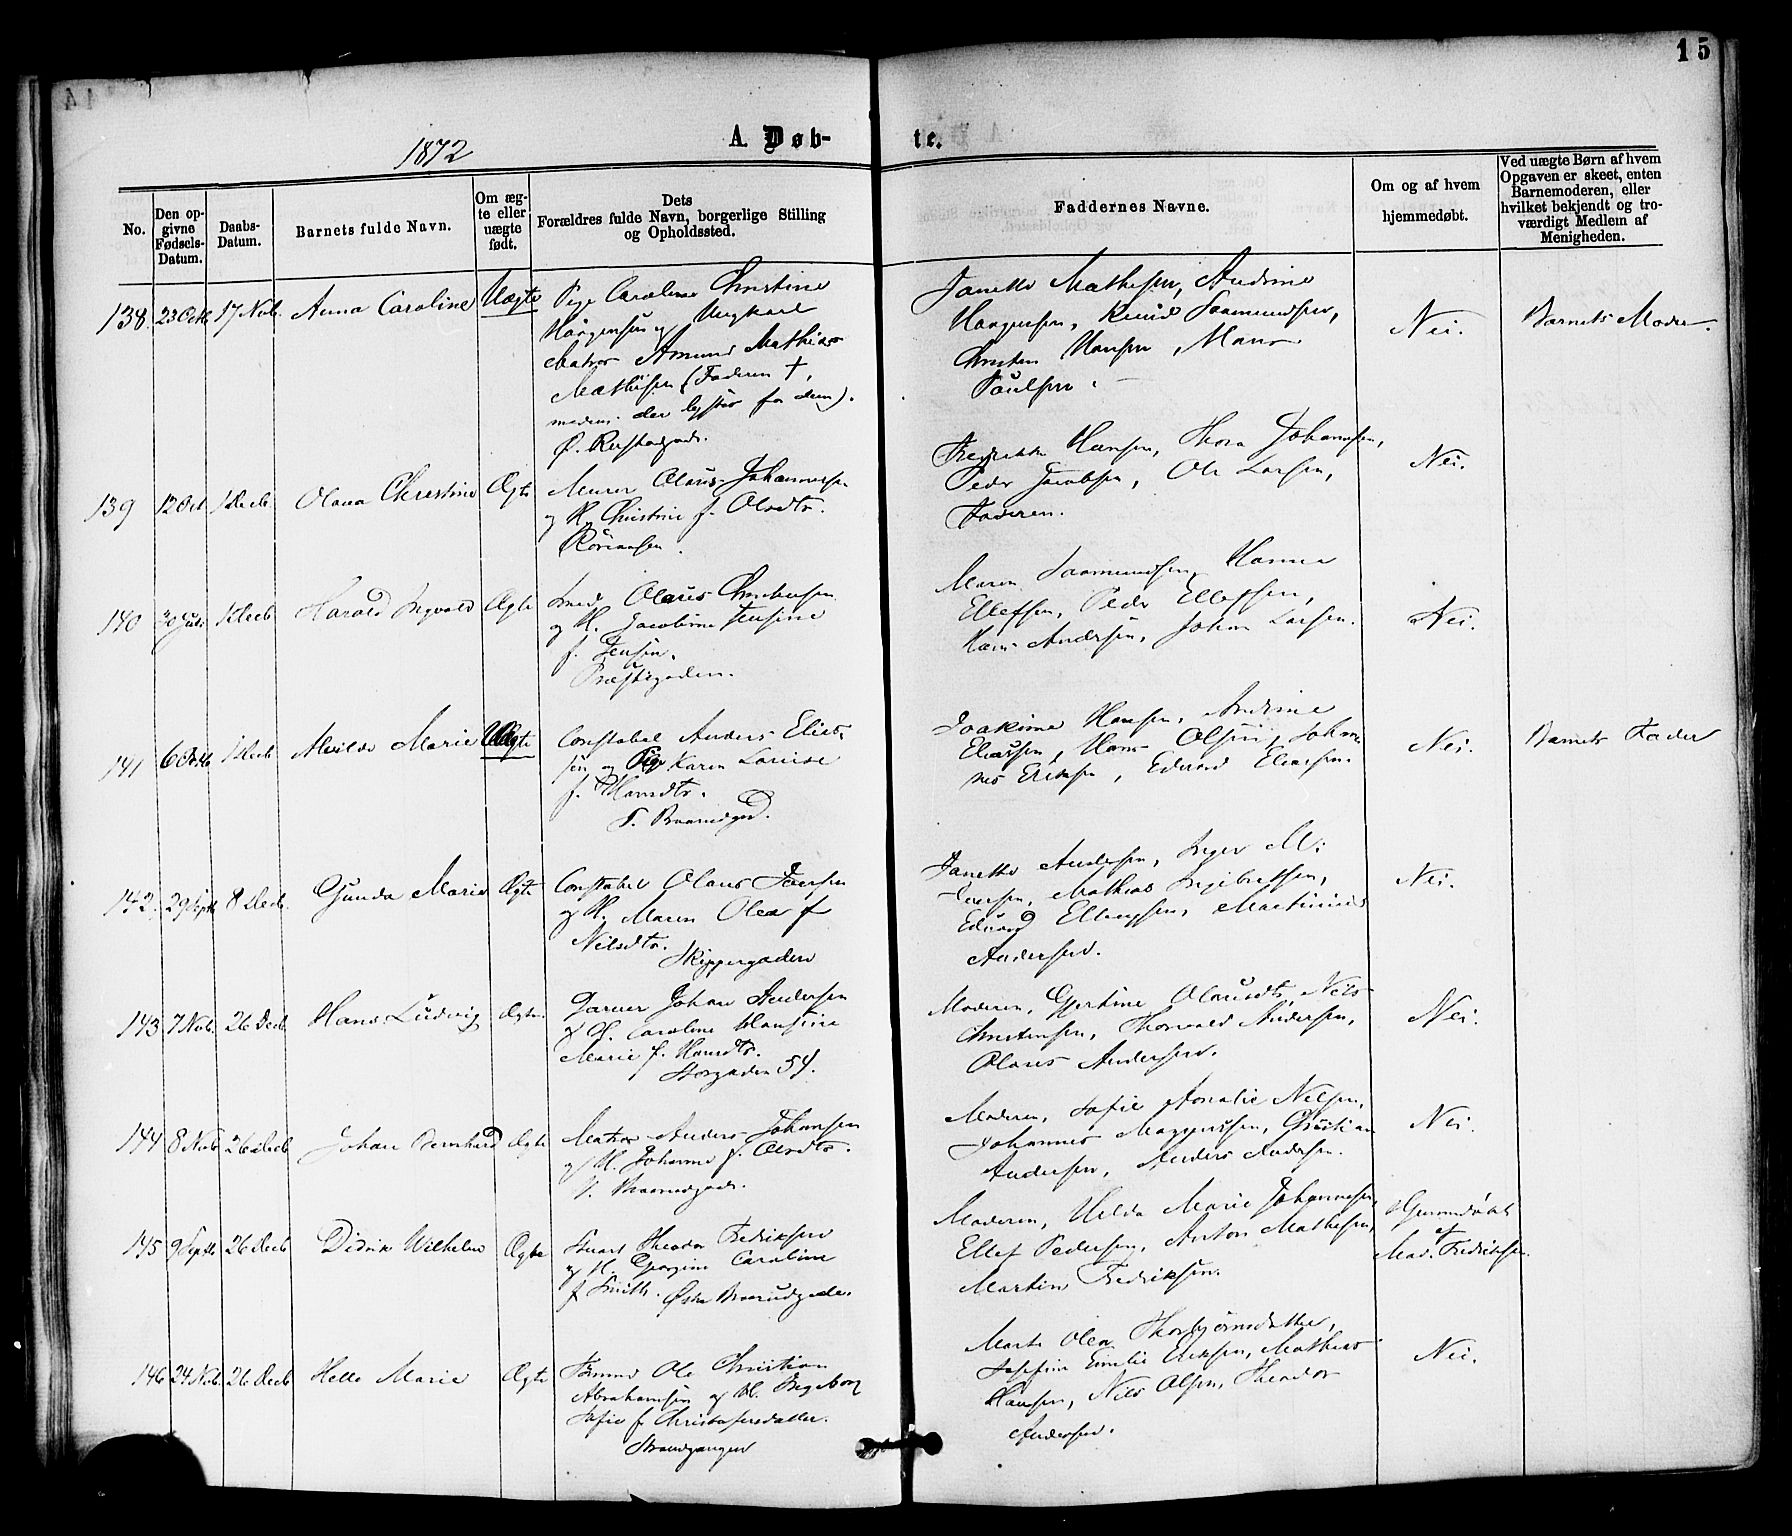 15
1872
A. Døb-
te.
No.
Den op-
givne
Fødsels-
Datum.
Daabs-
Datum.
Barnets fulde Navn.
Om æg-
te eller
uægte
født.
Dets
Forældres fulde Navn, borgerlige Stilling
og Opholdssted.
Faddernes Navne.
Om og af hvem
hjemmedøbt.
Ved uægte Børn af hvem
Opgaven er skeet, enten
Barnemoderen, eller
hvilket bekjendt og tro-
værdigt Medlem af
Menigheden.
138. 23 Octb 17 Novb. Anna Caroline Uægte
Pige Caroline Christine
og Ungkarl
Matros Amund Mathias
Mathisen (Faderen †,
der lystes for dem).
Ø.
Janette Mathesen, Andrine
Knud Saamundsen,
Christen Hansen, Hans
Paulsen.
Nei.
Barnets Moder.
139 12 Oct 1 Decb Olava Christine Ægte
Murer Olaus Johannessen
og H. Christine f. Olsdtr.
Fredrikke Hansen, Thora Johannsen,
Peder Jacobsen, Ole Larsen,
Faderen.
Nei.
140 30 Juli 1 Decb Harald Ingvald Ægte
Smed Olaus Christensen
og H. Jacobine Jensine
f. Jensen.
Præstegaden.
Maren Saamundsen, Hanna
Ellefsen, Peder Ellefsen,
Hans Andersen, Johan Larsen.
Nei.
141 6 Octb 1 Decb Alvilde Marie Uægte
Constabel Anders Elias-
sen og Pige Karen Louise
f. Hansdtr.
Joakime Hansen, Andrine
Eliassen, Hans Olsen, Johan-
nes Eriksen, Edvard Eliassen.
Nei.
Barnets Fader
142. 29 Septb 8 Decb. Gunda Marie Ægte
Constabel Olaus Iversen
og H. Maren Olea f
Nilsdtr.
Skippergaden
Janette Andersen, Inger M.
Iversen, Mathias Ingebretsen,
Edvard Ellingsen, Martinius
Andersen.
Nei.
143 7 Nob. 26 Decb Hans Ludvig Ægte
Garver Johan Andersen
og H. Caroline Hansine
Marie f. Hansdtr.
Storgaden 54.
Moderen, Gjertine Olausdtr, Nils
Christensen, Thorvald Andersen,
Olaus Andersen.
Nei.
144 8 Novb 26 Decb Johan Bernhard Ægte
Matros Anders Johansen
og H. Johanne f. Olsdtr.
Moderen, Sofie Amalie Nilsen,
Johannes Magnussen, Christian
Andersen, Anders Andersen.
Nei.
145 9 Septb 26 Decb Didrik Wilhelm Ægte
Stuert Theodor Fredriksen
og H. Georgine Caroline
f Smith. Østre Braarudgade.
Moderen, Hilda Marie Johannesen,
Ellef Pedersen, Anton Mathesen,
Martin Fredriksen.
Hjemmedøbt
af
Mad. Fredriksen.
146 24 Nob. 26 Decb Helle Marie Ægte
Tømmermand Ole Christian
Abrahamsen og H. Ingeborg
Sofie f. Christofersdatter.
Strandgangen
Marte Olea Thorbjørnsdatter,
Josefine Emilie Eriksen, Mathias
Hansen, Nils Olsen, Theodor
Andersen.
Nei.